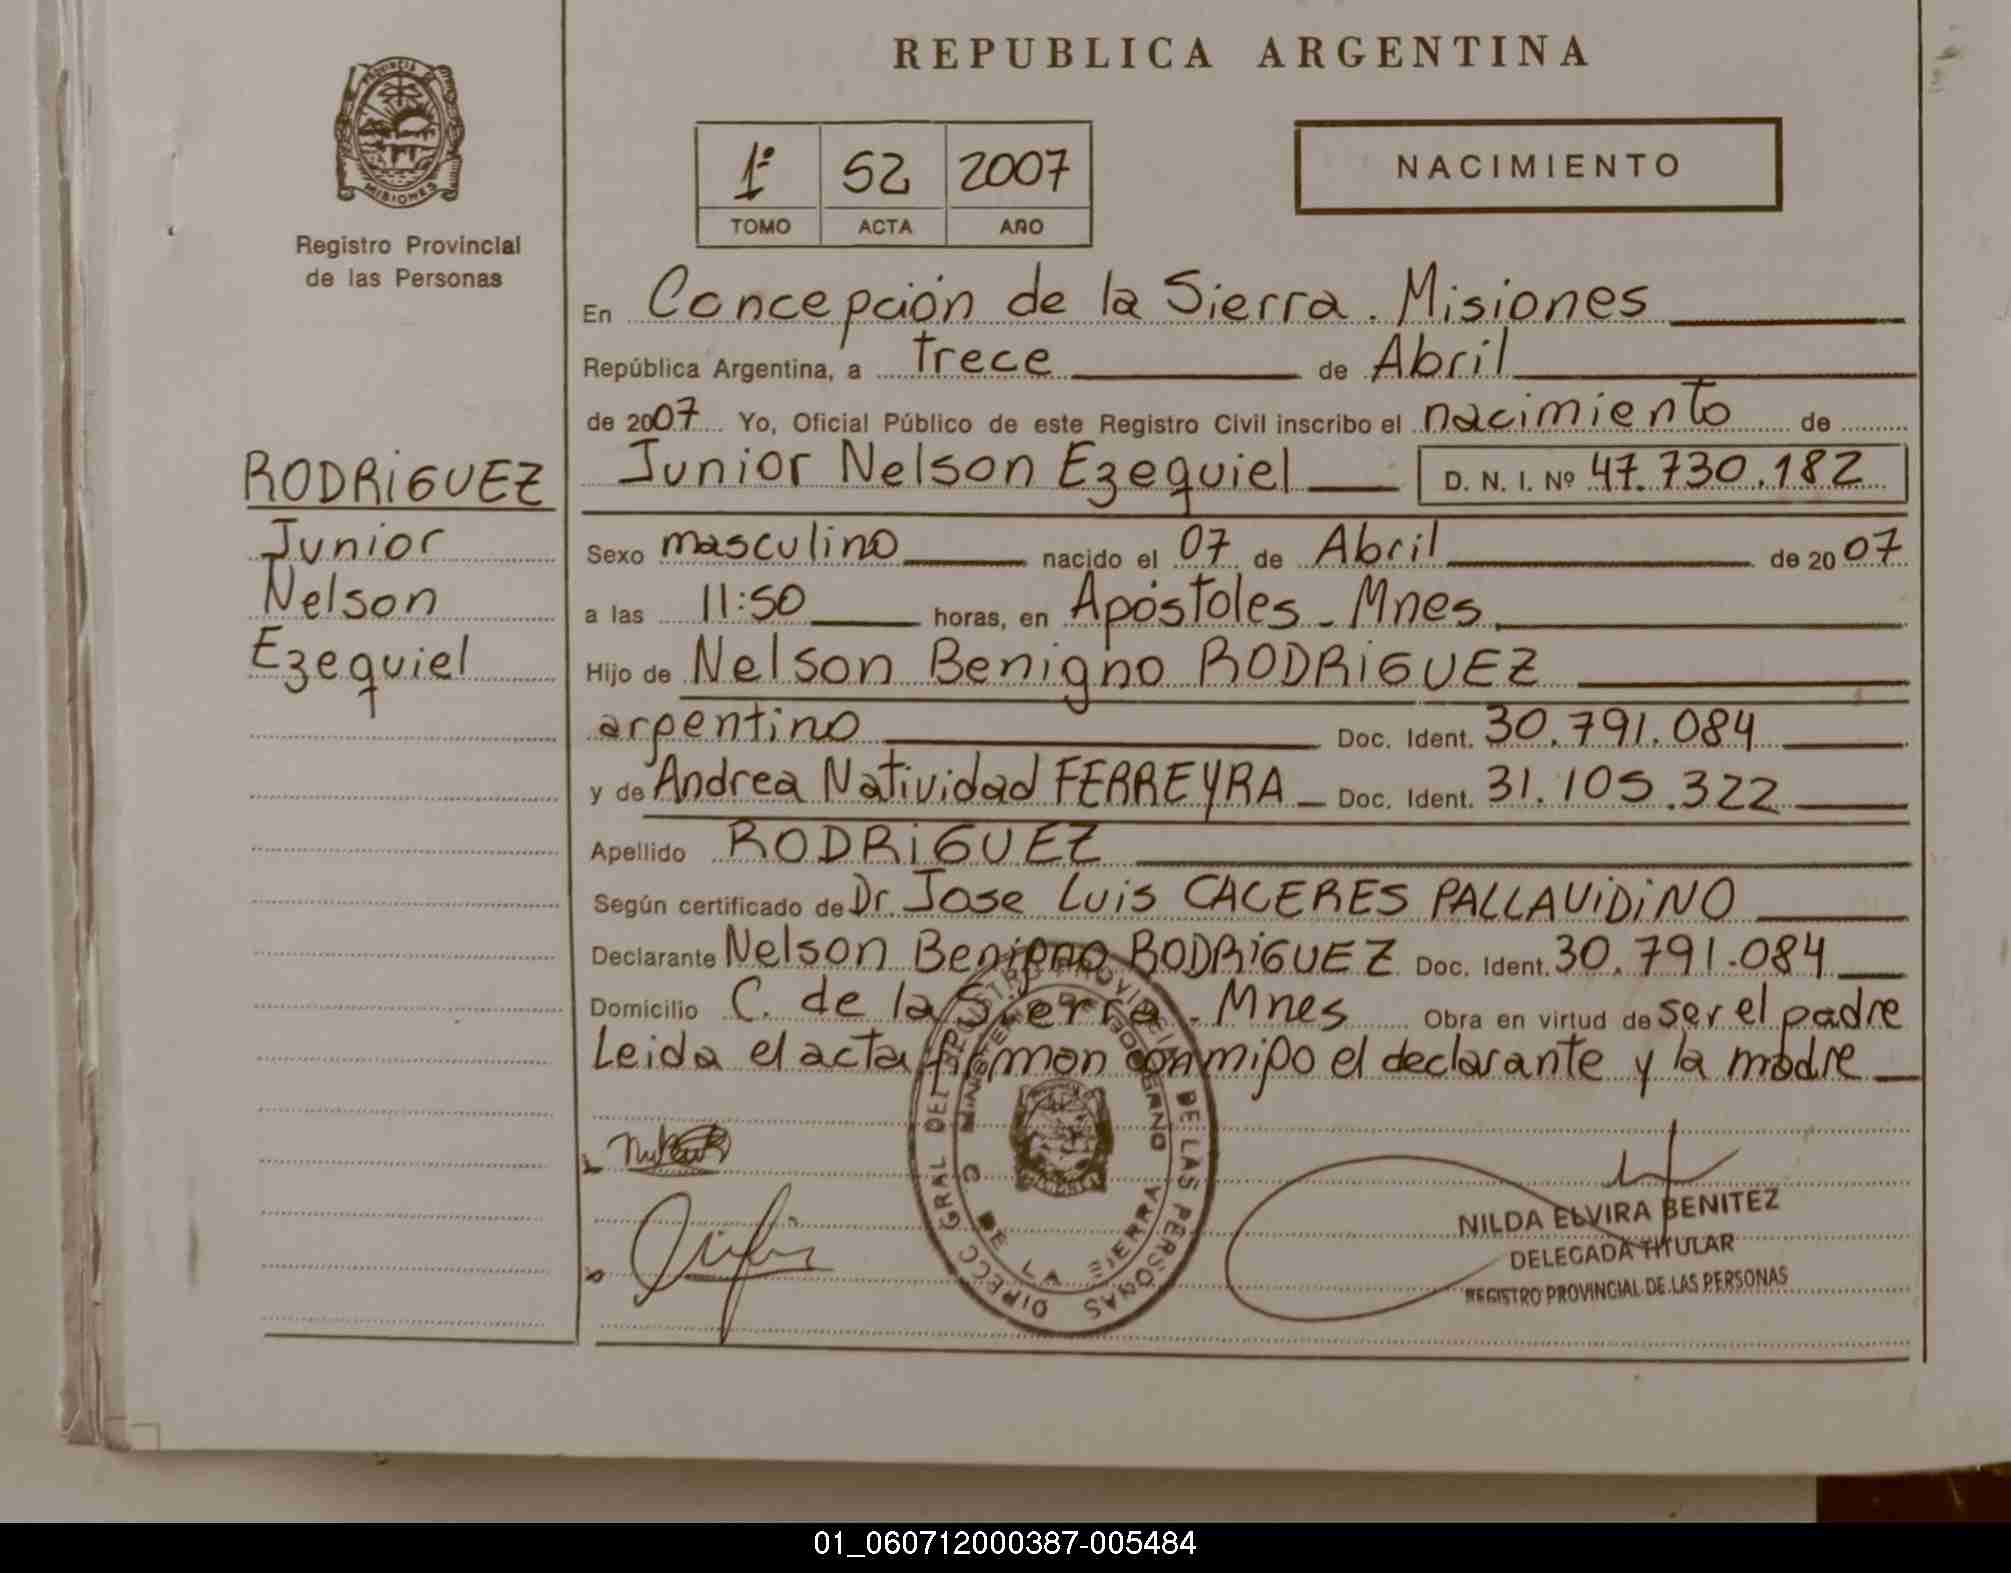 REPUBLICA ARGENTINA
PROVINCIA DE
MISIONES
Registro Provincial
de las Personas
1º 52 2007
TOMO ACTA AÑO
NACIMIENTO
En Concepción de la Sierra. Misiones
República Argentina, a trece de Abril
de 2007 Yo, Oficial Público de este Registro Civil inscribo el nacimiento de
Junior Nelson Ezequiel D. N. I. Nº 47.730.182
RODRIGUEZ
Junior
Nelson
Ezequiel
Sexo masculino nacido el 07 de Abril de 2007
a las 11:50 horas, en Apóstoles - Mnes
Hijo de Nelson Benigno RODRIGUEZ
argentino Doc. Ident. 30.791.084
y de Andrea Natividad FERREYRA Doc. Ident. 31.105.322
Apellido RODRIGUEZ
Según certificado de Dr. Jose Luis CACERES PALLAVIDINO
Declarante Nelson Benigno RODRIGUEZ Doc. Ident. 30.791.084
Domicilio C. de la Sierra - Mnes Obra en virtud de ser el padre
Leida el acta firman conmigo el declarante y la madre
DIRECC GRAL DEL REGISTRO PROVINCIAL DE LAS PERSONAS
MINISTERIO DE GOBIERNO
C DE LA SIERRA
NILDA ELVIRA BENITEZ
DELEGADA TITULAR
REGISTRO PROVINCIAL DE LAS PERSONAS
01_060712000387-005484